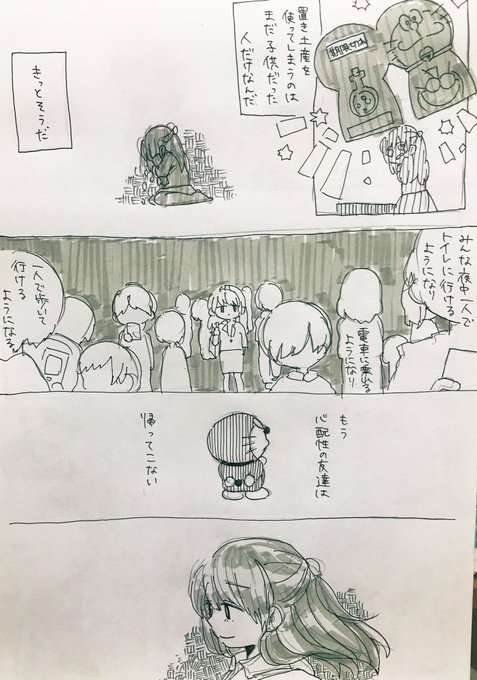 置き土産を
使ってしまうのは
まだ子供だった
人だけなんだ
期限切れ
きっとそうだ
みんな夜中一人で
トイレに行ける
ようになり
電車に乗れる
ようになり
一人で歩いて
行ける
ようになる
もう
心配性の友達は
帰ってこない